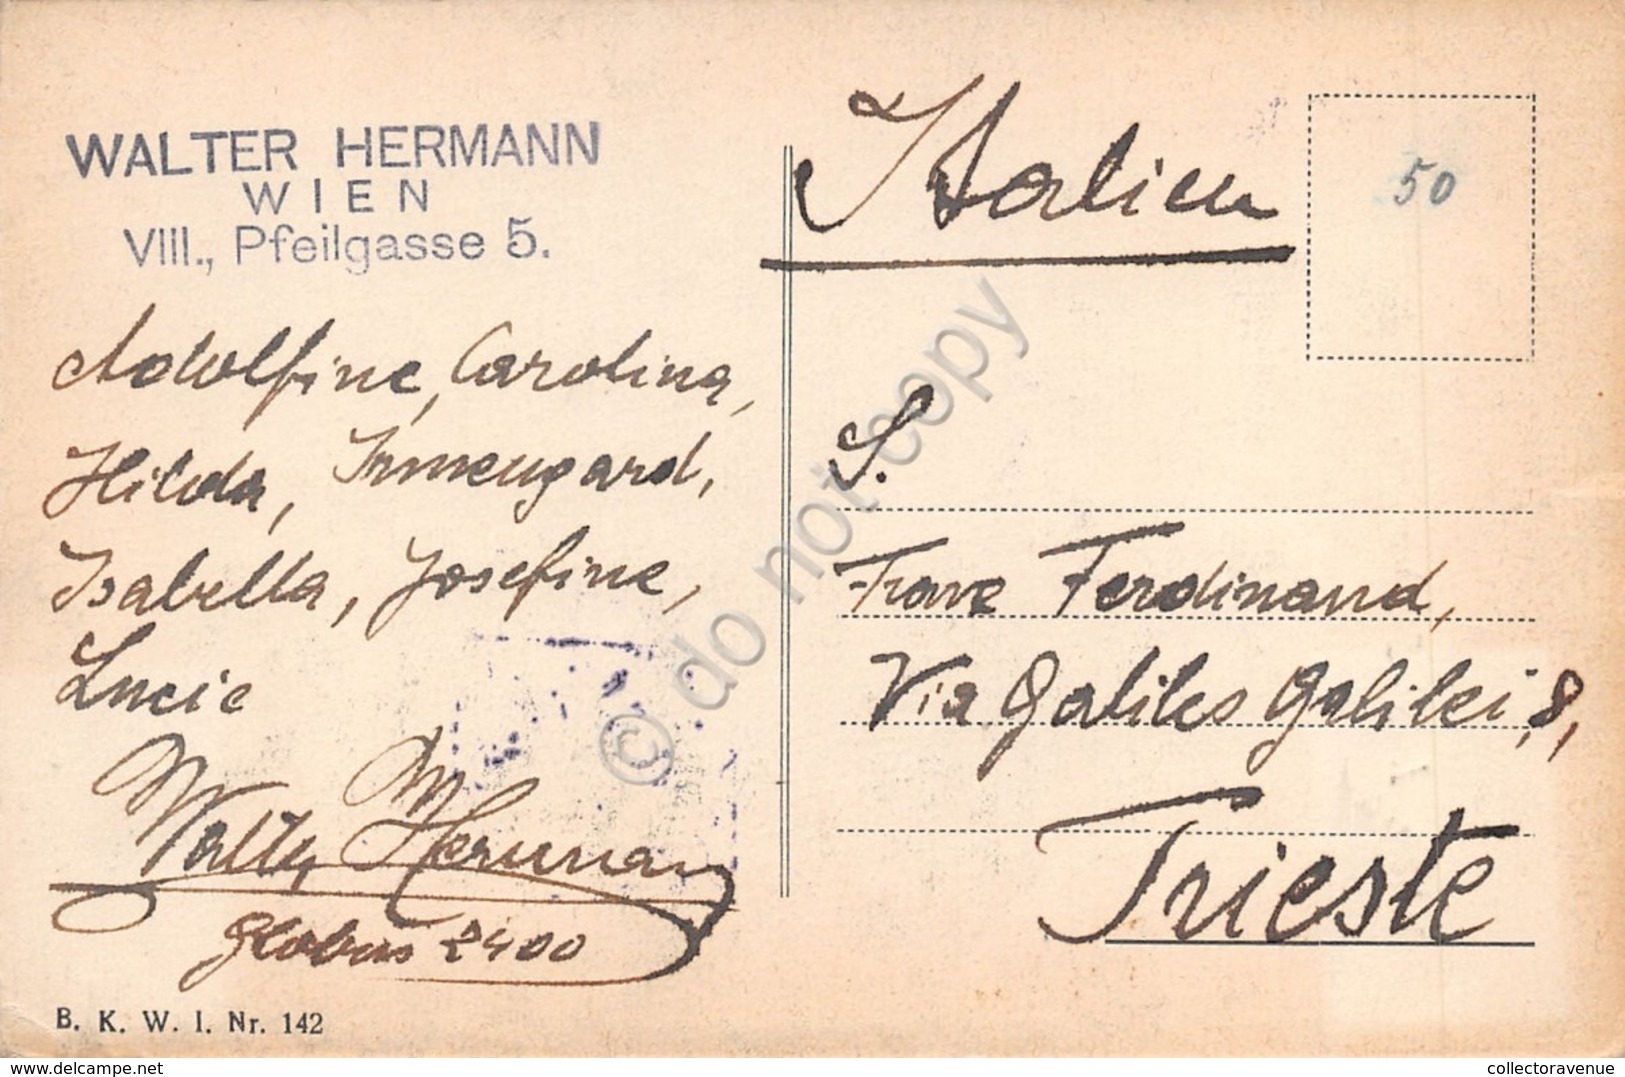 WALTER HERMANN
WIEN
VIII., Pfeilgasse 5.
Adolfine, Carolina,
Hilda, Irmengard,
Isabella, Josefine,
Lucie
Walter Hermann
Globus 2400
B. K. W. I. Nr. 142
Italien
50
S.
Franz Ferdinand,
Via Galileo Galilei, 8,
Trieste
© do not copy
www.delcampe.net
collectoravenue